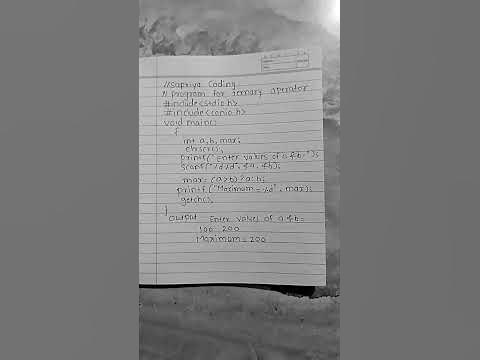 //Supriya Coding
// Program for Ternary operator
#include<stdio.h>
#include<conio.h>
void main()
{
int a,b, max;
clrscr();
printf("Enter values of a & b=");
scanf("%d%d", &a, &b);
max = (a>b)?a:b;
printf("Maximum =%d", max);
getch();
}
output Enter values of a & b=
100 200
Maximum = 200